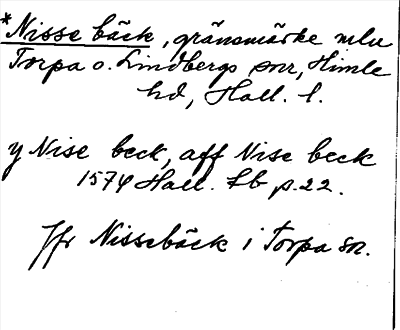 *Nisse bäck, gränsmärke mlu
Torpa o. Lindbergs snr, Himle
hd, Hall. l.
y Nise beck, aff Nise beck
1574 Hall. Jb p. 22.
Jfr Nissebäck i Torpa sn.